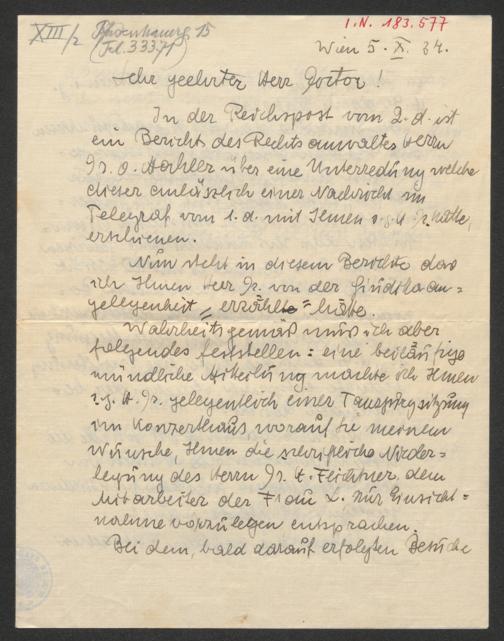 I.N. 183.577
XIII/2 15
(Tel. 33371)
Wien 5. X. 34.
Sehr geehrter Herr Doctor!
In der Reichspost vom 2. d. ist
ein Bericht des Rechtsanwaltes Herrn
Dr. O. Hahler über eine Unterredung welche
dieser anlässlich einer Nachricht im
Telegraf vom 1. d. mit Ihnen s. g. H. Dr. hatte,
erschienen.
Nun steht in diesem Berichte das
ich Ihnen Herr Dr. von der
gelegenheit "erzählte" hätte.
Wahrheitsgemäß muss ich aber
folgendes feststellen: eine beiläufige
mündliche Mitteilung machte ich Ihnen
s. g. H. Dr. gelegentlich einer
im Konzerthaus worauf Sie meinem
Wunsche, Ihnen die schriftliche Nieder-
legung des Herrn Dr. H. Feichtner, dem
Mitarbeiter der Frau L. zur Einsicht=
nahme vorzulegen entsprachen.
Bei dem, bald darauf erfolgten Besuche